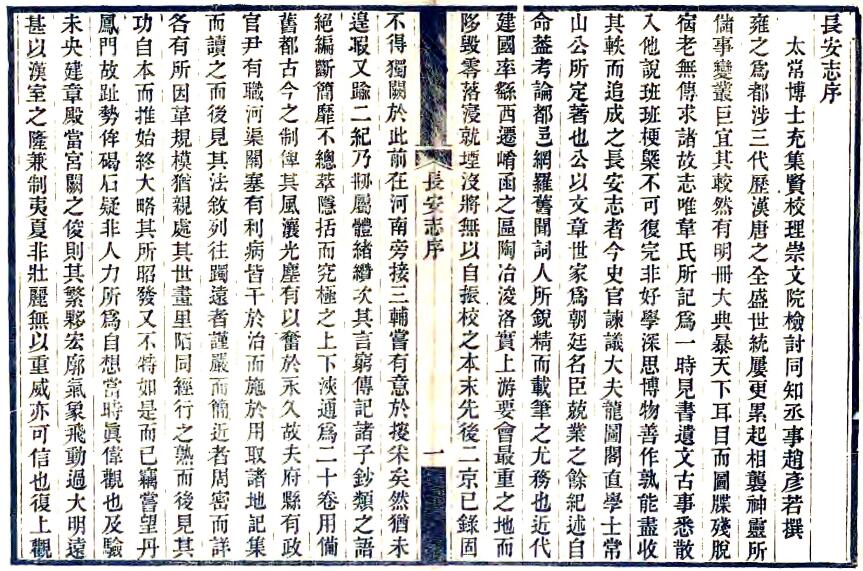 長安志序
太常博士充集賢校理崇文院檢討同知丞事趙彥若撰
雍之為都涉三代歷漢唐之全盛世統屢更累起相襲神靈所
儲事變叢巨宜其較然有明冊大典暴天下耳目而圖牒殘脫
宿老無傳求諸故志唯韋氏所記為一時見書遺文古事悉散
入他說班班梗槩不可復完非好學深思博物善作孰能盡收
其軼而追成之長安志者今史官諫議大夫龍圖閣直學士常
山公所定著也公以文章世家為朝廷名臣兢業之餘紀述自
命葢考論都邑網羅舊聞詞人所銳精而載筆之尤務也近代
建國率繇西遷崤函之區陶冶浚洛實上游要會最重之地而
陊毀零落寖就堙沒將無以自振校之本末先後二京已錄固
長安志序
一
不得獨闕於此前在河南旁接三輔嘗有意於搜采矣然猶未
遑暇又踰二紀乃刱屬體緒纘次其言窮傳記諸子鈔類之語
絕編斷簡靡不總萃隱括而究極之上下浹通為二十卷用備
舊都古今之制俾其風瀼光塵有以奮於永久故夫府縣有政
官尹有職河渠關塞有利病皆干於治而施於用取諸地記集
而讀之而後見其法敘列往躅遠者謹嚴而簡近者周密而詳
各有所因革規模猶親處其世畫里陌同經行之熟而後見其
功自本而推始終大略其所昭發又不特如是而已竊嘗望丹
鳳門故趾勢侔碣石疑非人力所為自想當時眞偉觀也及驗
未央建章殿當宮闕之俊則其繁夥宏廓氣象飛動過大明遠
甚以漢室之隆兼制夷夏非壯麗無以重威亦可信也復上觀